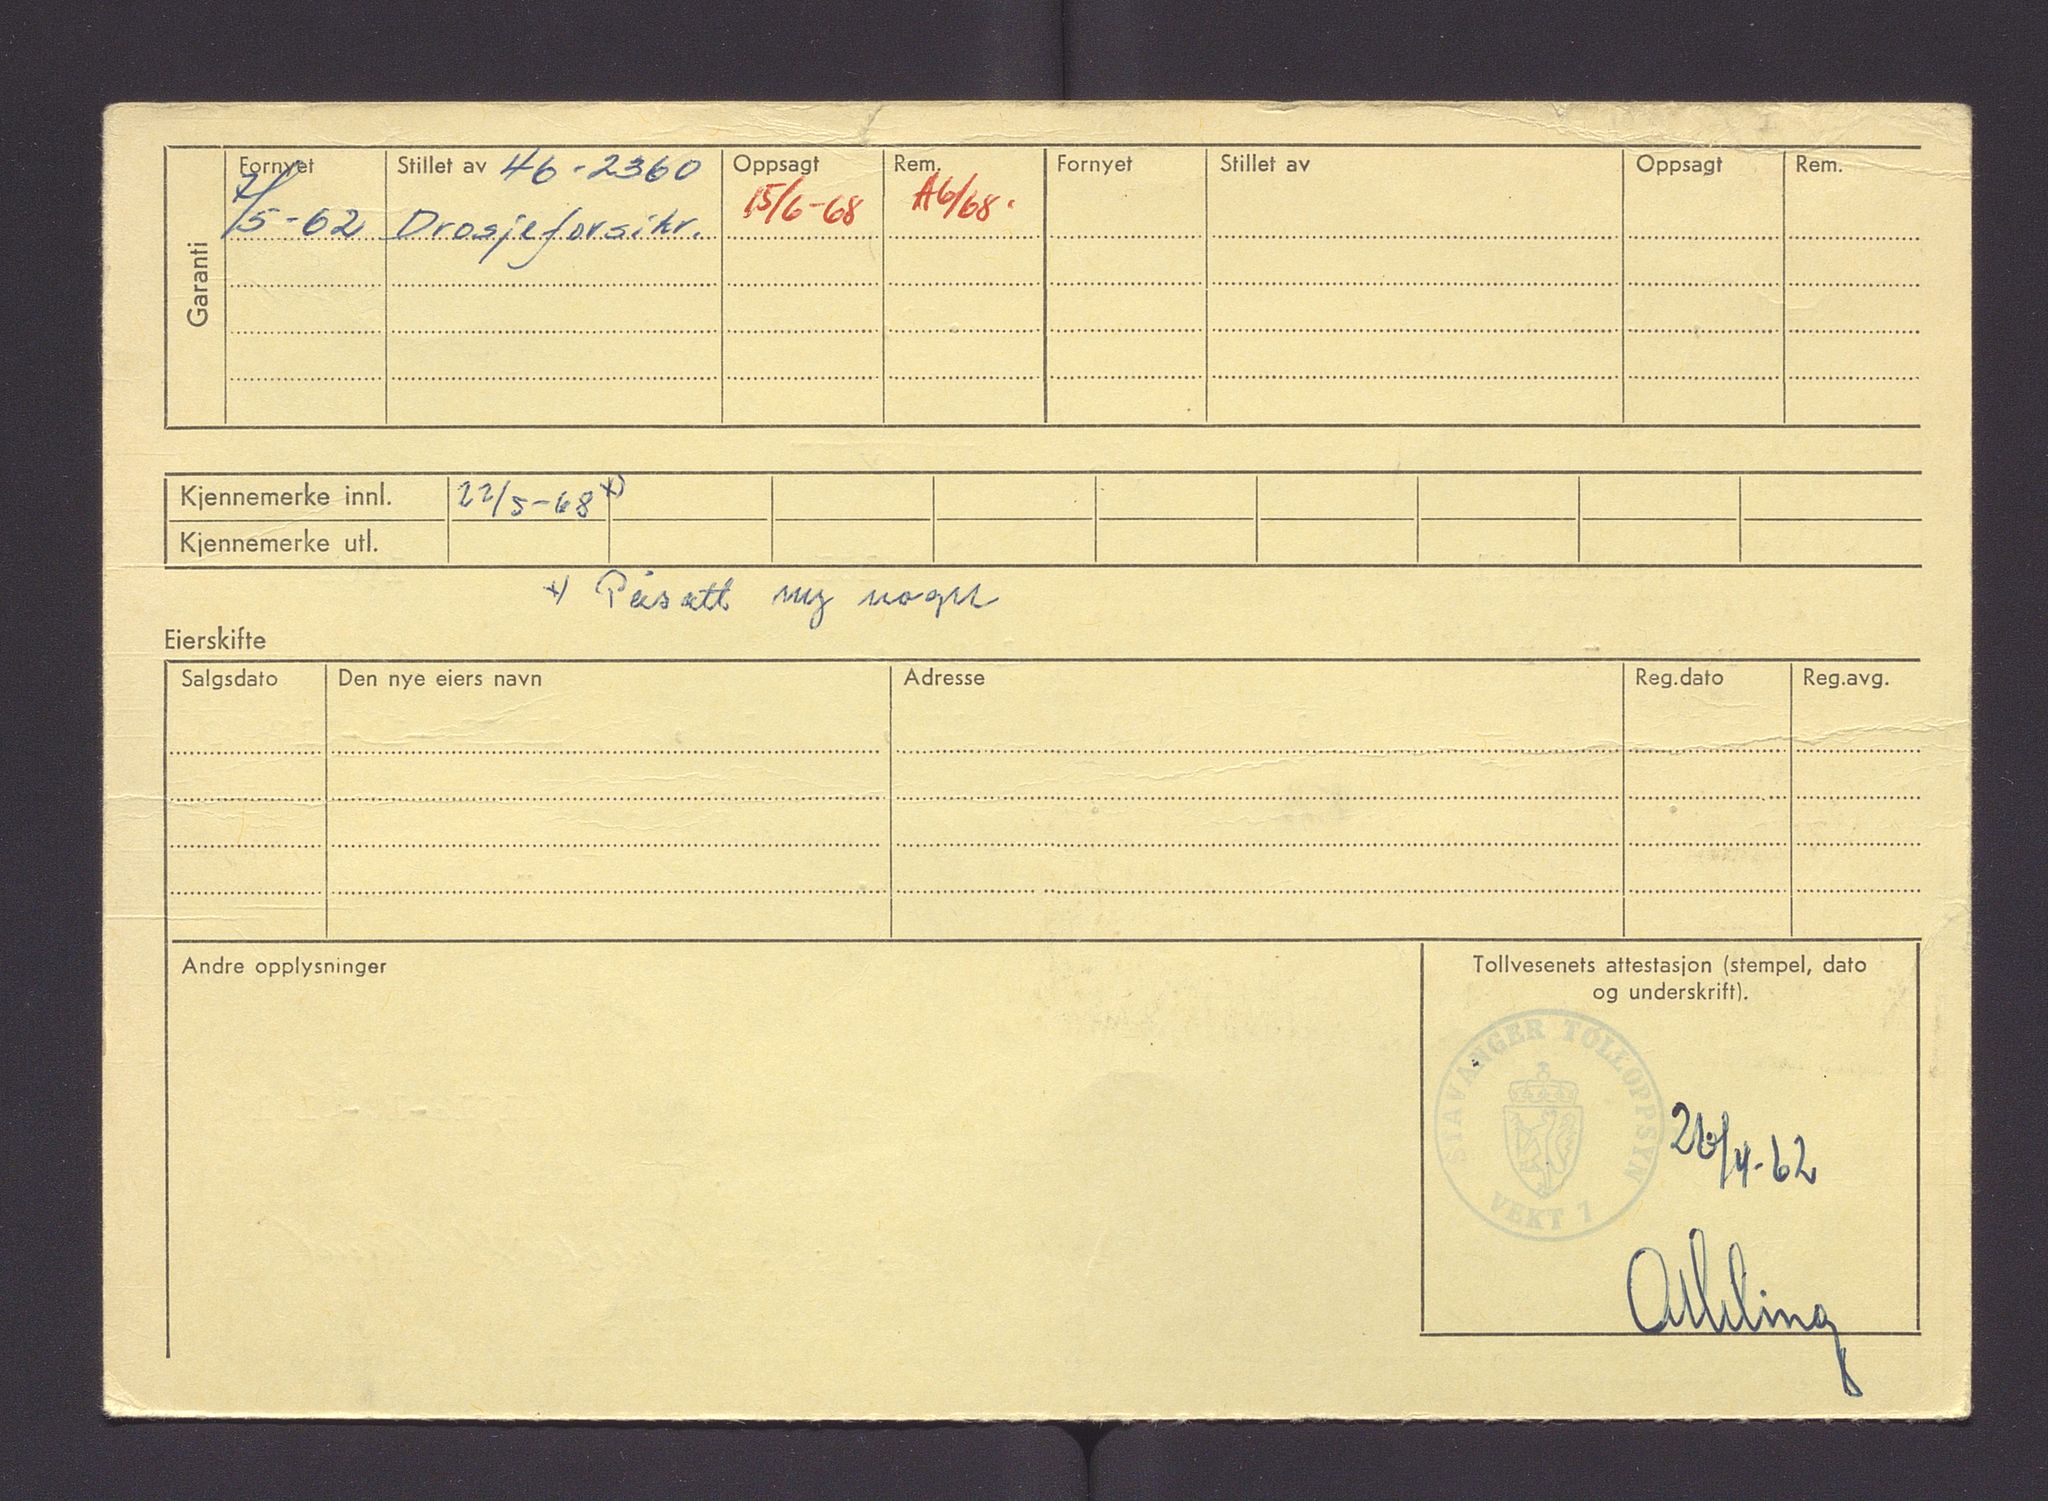 Garanti
Fornyet Stillet av 46-2360 Oppsagt Rem. Fornyet Stillet av Oppsagt Rem.
7/5-62 Drosjeforsikr. 15/6-68 A6/68.
Kjennemerke innl. 22/5-68 x)
Kjennemerke utl.
x) Påsatt ny vogn
Eierskifte
Salgsdato Den nye eiers navn Adresse Reg.dato Reg.avg.
Andre opplysninger
Tollvesenets attestasjon (stempel, dato
og underskrift).
STAVANGER TOLLOPPSYN
VEKT 1
26/4-62